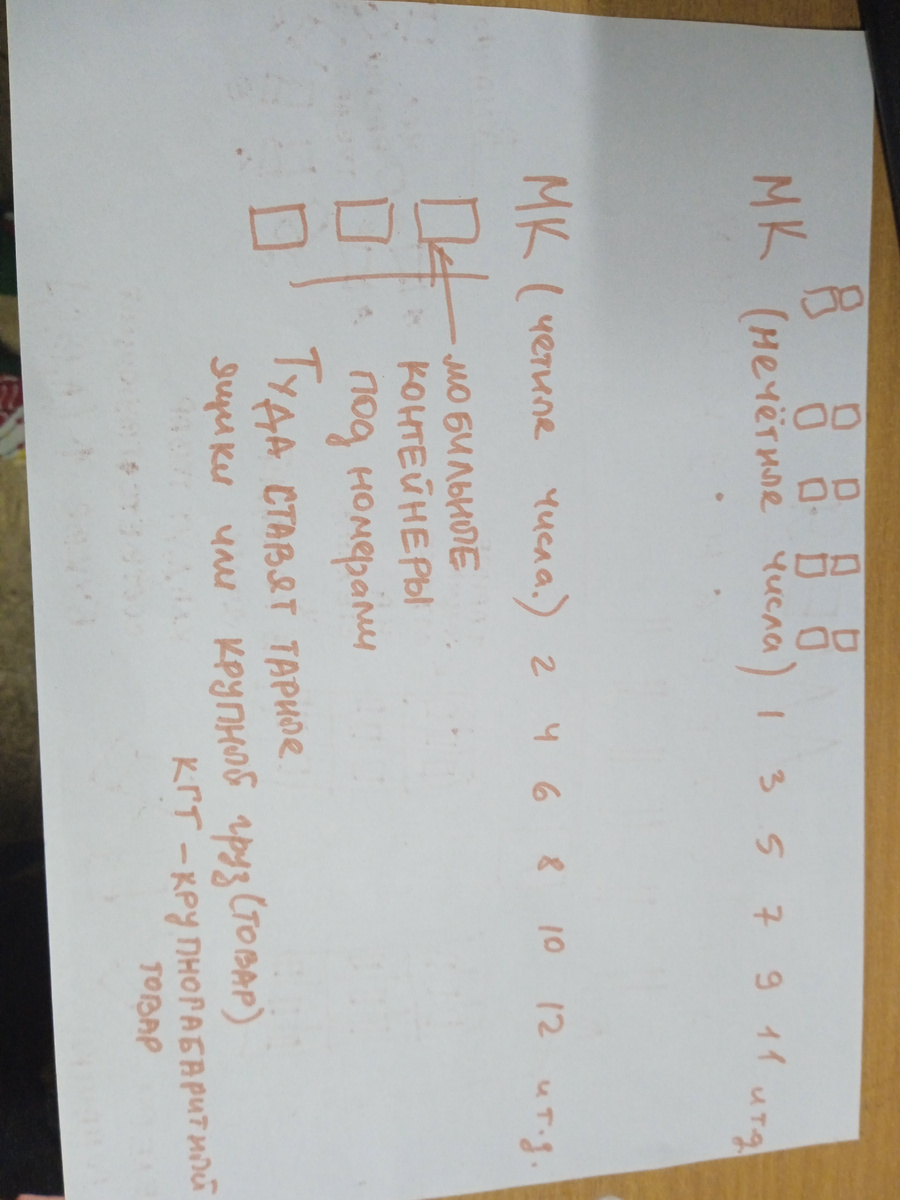 МК (нечётные числа) 1 3 5 7 9 11 и т.д
МК (четные числа.) 2 4 6 8 10 12 и т.д.
мобильные
контейнеры
под номерами
Туда ставят тарные
ящики или крупный груз (товар)
КГТ - крупногабаритный
товар